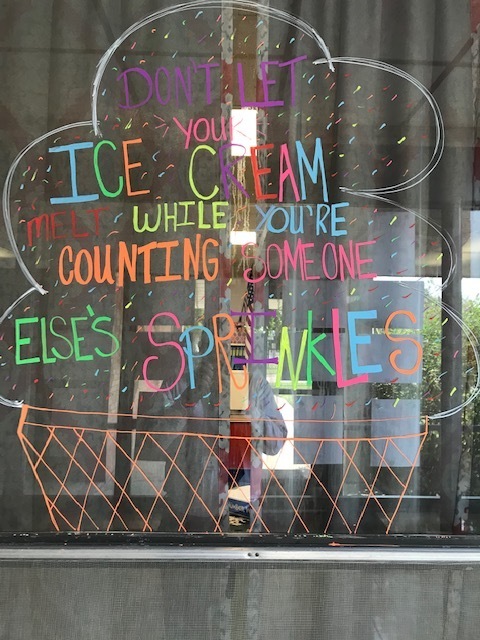 DON'T LET
YOUR
ICE CREAM
MELT WHILE YOU'RE
COUNTING SOMEONE
ELSE'S SPRINKLES